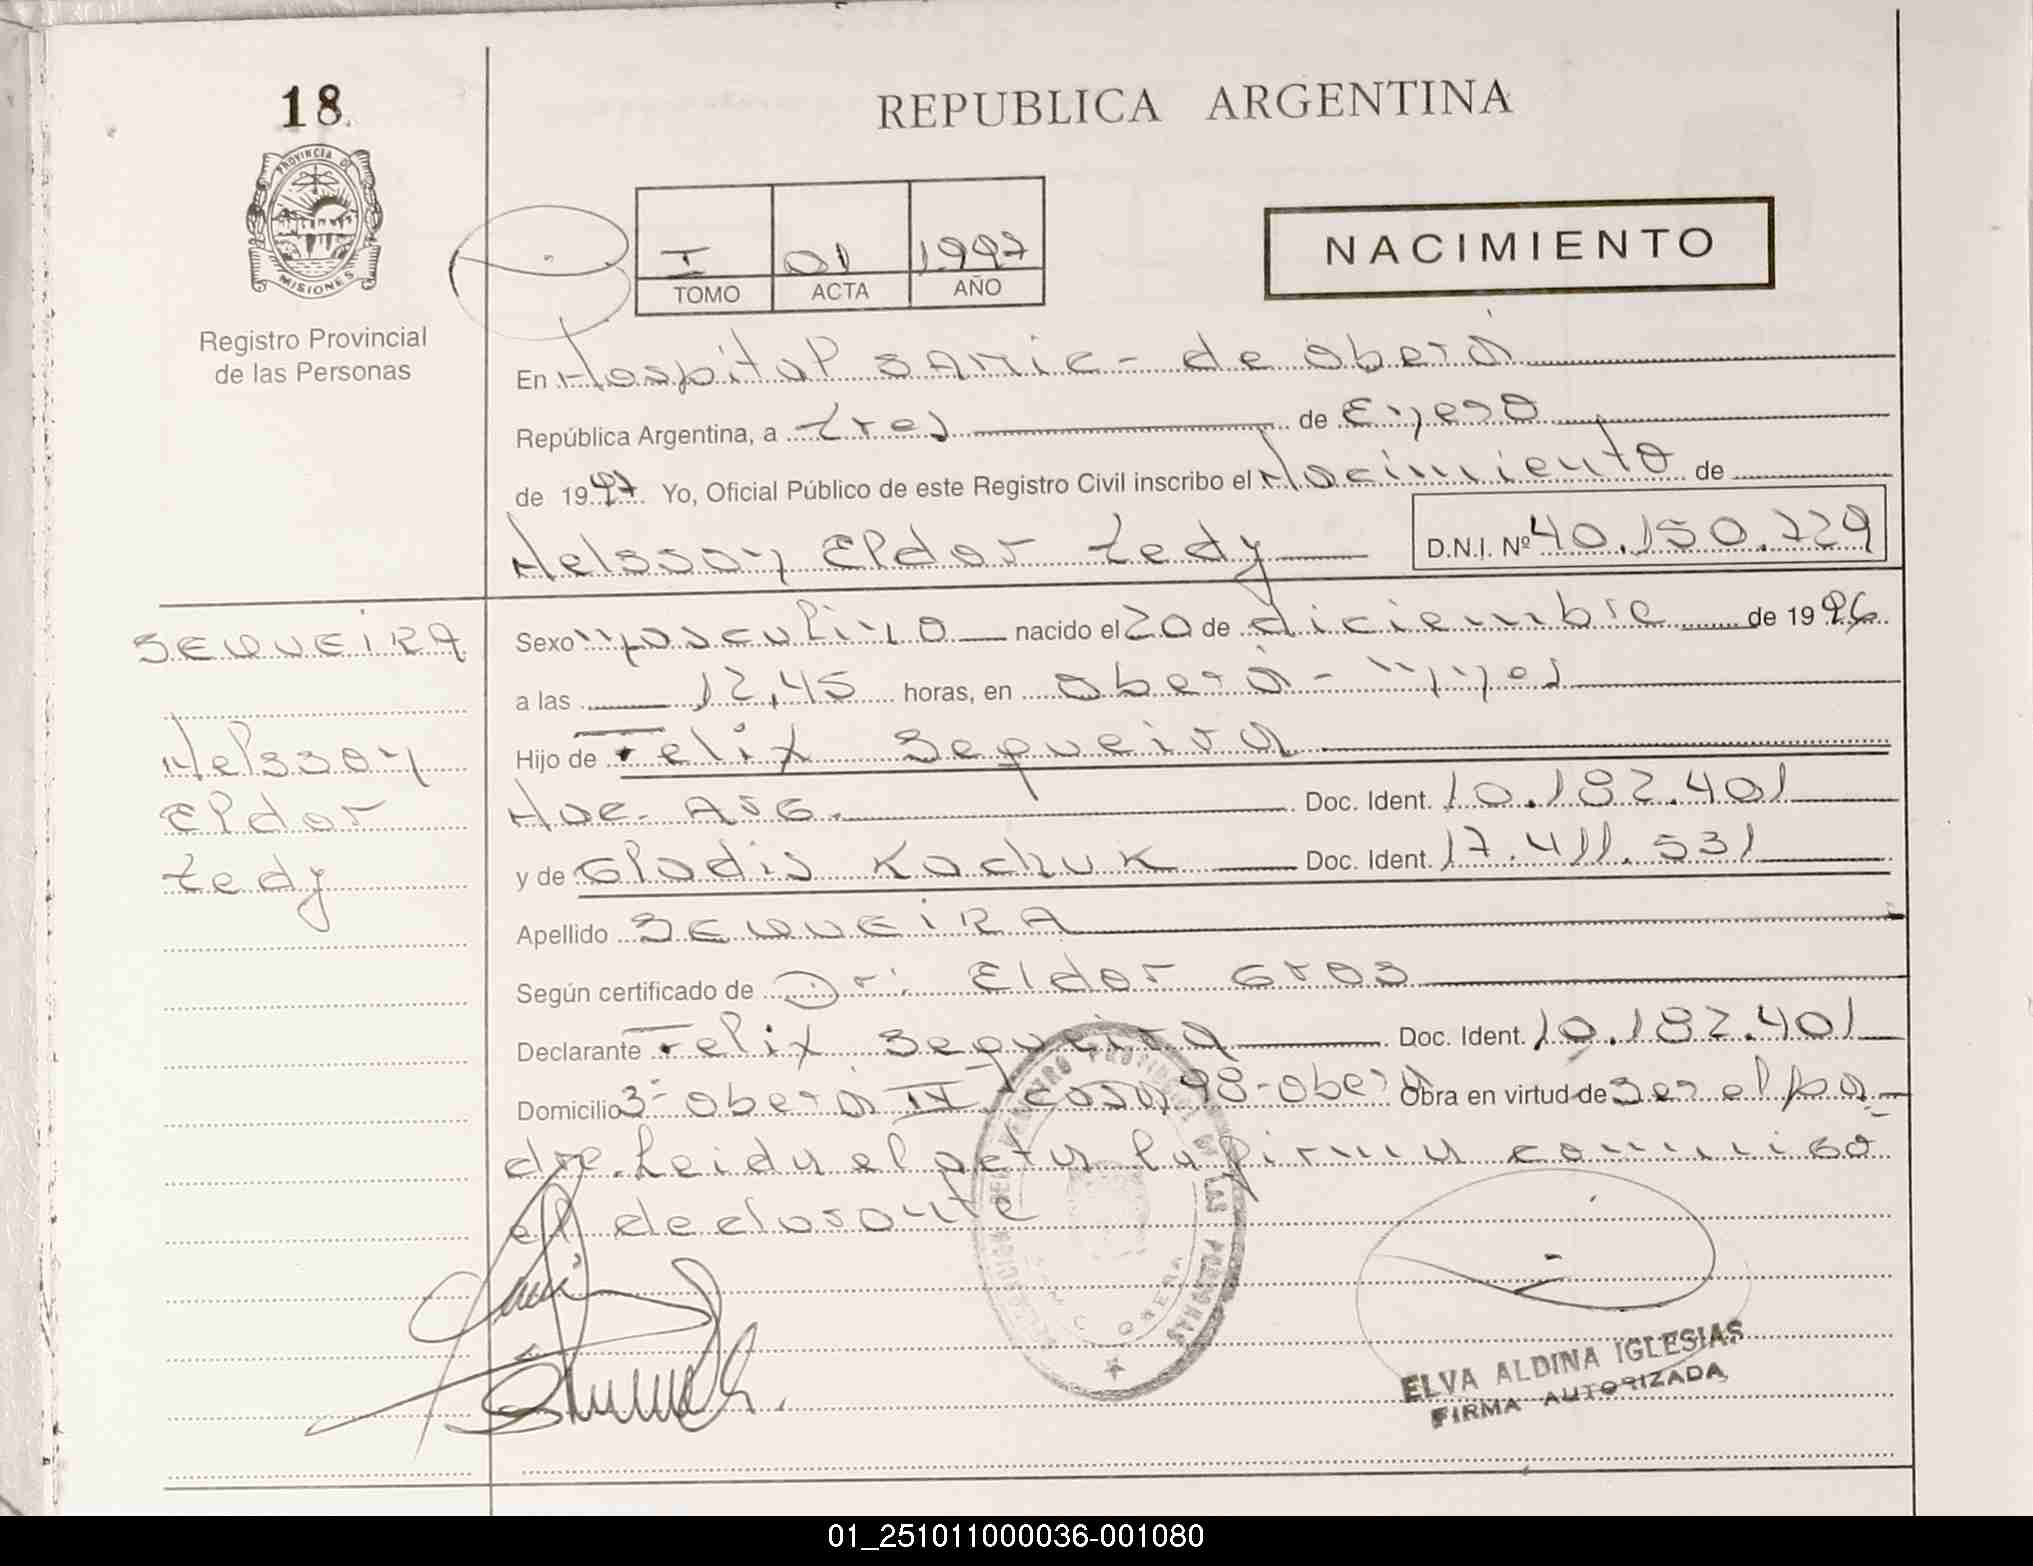 18
REPUBLICA ARGENTINA
PROVINCIA DE
MISIONES
Registro Provincial
de las Personas
I 01 1997
TOMO ACTA AÑO
NACIMIENTO
En Hospital SAMIC - de Oberá
República Argentina, a tres de Enero
de 1997 Yo, Oficial Público de este Registro Civil inscribo el Nacimiento de
Nelsson Eldor Tedy D.N.I. Nº 40.150.729
SEQUEIRA
Nelsson
Eldor
Tedy
Sexo Masculino nacido el 20 de diciembre de 1996
a las 12,45 horas, en Oberá - Mnes
Hijo de Felix Sequeira
Nac. Arg. Doc. Ident. 10.182.401
y de Gladis Kachuk Doc. Ident. 17.411.531
Apellido SEQUEIRA
Según certificado de Dr: Eldor Gros
Declarante Felix Sequeira Doc. Ident. 10.182.401
Domicilio Bº Oberá IV casa 98 - Oberá Obra en virtud de ser el pa-
dre. Leida el acta la firma conmigo
el declarante
REGISTRO PROVINCIAL DE LAS PERSONAS
OBERA
ELVA ALDINA IGLESIAS
FIRMA AUTORIZADA
01_251011000036-001080